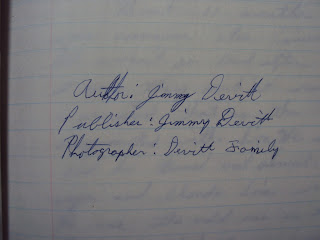 Author: Jimmy Devitt
Publisher: Jimmy Devitt
Photographer: Devitt Family